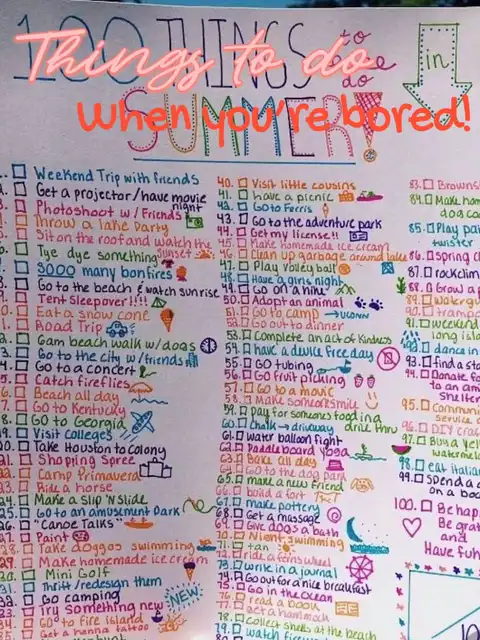 100 THINGS to
Things to do
do
in
SUMMER!
when you're bored!
Weekend Trip with friends
2. Get a projector/have movie night
3. Photoshoot w/ Friends
Throw a lake Party
5. Sit on the roof and watch the sunset
6. Tye dye something
7. 3000 many bonfires
8. Go to the beach & watch sunrise
9. Tent Sleepover!!!!
10. Eat a snow cone
11. Road Trip
12. 6am beach walk w/ dogs
13. Go to the city w/ friends
14. Go to a concert
15. Catch fireflies
16. Beach all day
17. Go to Kentucky
18. Go to Georgia
19. Visit Colleges
20. Take Houston to Colony
21. Shopping Spree
22. Camp Primavera
23. Ride a horse
24. Make a slip 'N slide
25. Go to an amusement Park
26. "Canoe Talks"
27. Paint
28. Take doggos swimming
29. Make homemade ice cream
30. Mini Golf
31. thrift/redesign them
32. Go camping
33. Try something new
NEW
34. Go to fire island
35. Get a henna tattoo
40. Visit little cousins
41. have a picnic
42. Go to Ferris
43. Go to the adventure park
44. Get my license!!
45. Make homemade ice cream
46. Clean up garbage around lake
47. Play volleyball
48. Have a girls night
49. Go on a hike
50. Adopt an animal
51. Go to camp → UCONN
52. Go out to dinner
53. Complete an act of kindness
54. have a device free day
55. Go tubing
56. Go fruit picking
57. Go to a movie
58. Make someone smile
59. Pay for someones food in a drive thru
60. Chalk → driveway
61. water balloon fight
62. Paddle board yoga
63. Bake all day
64. Go to the dog park
65. make a new friend
66. build a fort
67. make pottery
68. Get a massage
69. Give dogs a bath
70. Night swimming
71. tan
72. ride a ferris wheel
73. write in a journal
74. Go out for a nice breakfast
75. Go in the Ocean
76. read a book
77. Get a hammock
78. Collect shells at the beach
79. watch
83. Browns
84. Make hom
dog co
85. Play pai
twister
86. Spring c
87. rockclim
88. Grow a p
89. Watergu
90. tramp
91. weekend
long isla
92. dance in
93. find a sta
94. Donate fo
to an am
shelter
95. Commun
service
96. DIY crac
97. Buy a yel
watermelo
98. eat italia
99. Spend a
on a bo
100. Be hap
Be grat
and
Have fun